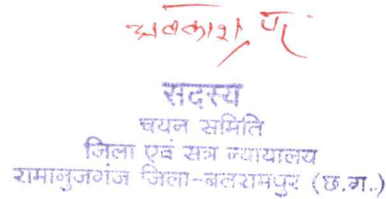 अवकाश पर
सदस्य
चयन समिति
जिला एवं सत्र न्यायालय
रामानुजगंज जिला-बलरामपुर (छ.ग.)